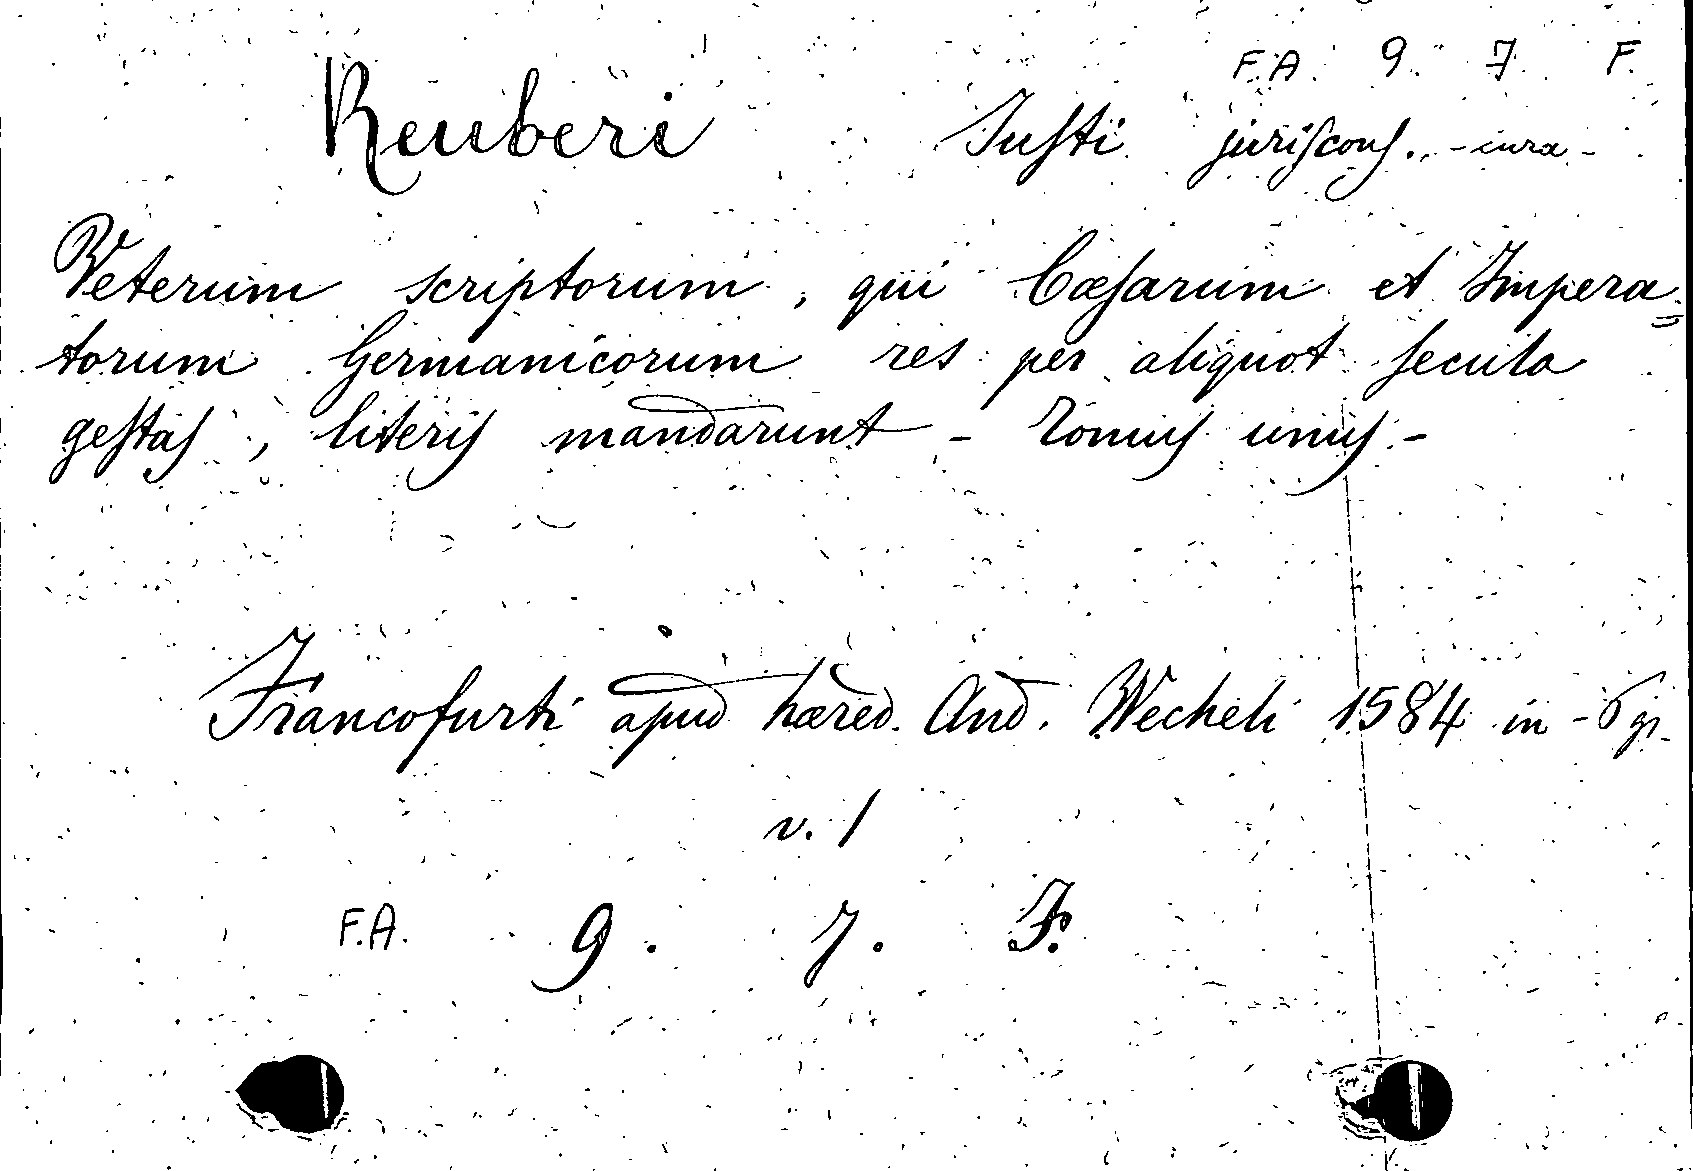 F.A. 9. 7. F.
Reuberi Justi juriscons. - cura -
Veterum scriptorum, qui Cæsarum et Impera=
torum Germanicorum res per aliquot secula
gestas, literis mandarunt - Tomus unus -
Francofurti apud hæred. And. Wecheli 1584 in -
v. 1
F.A. 9. 7. F.